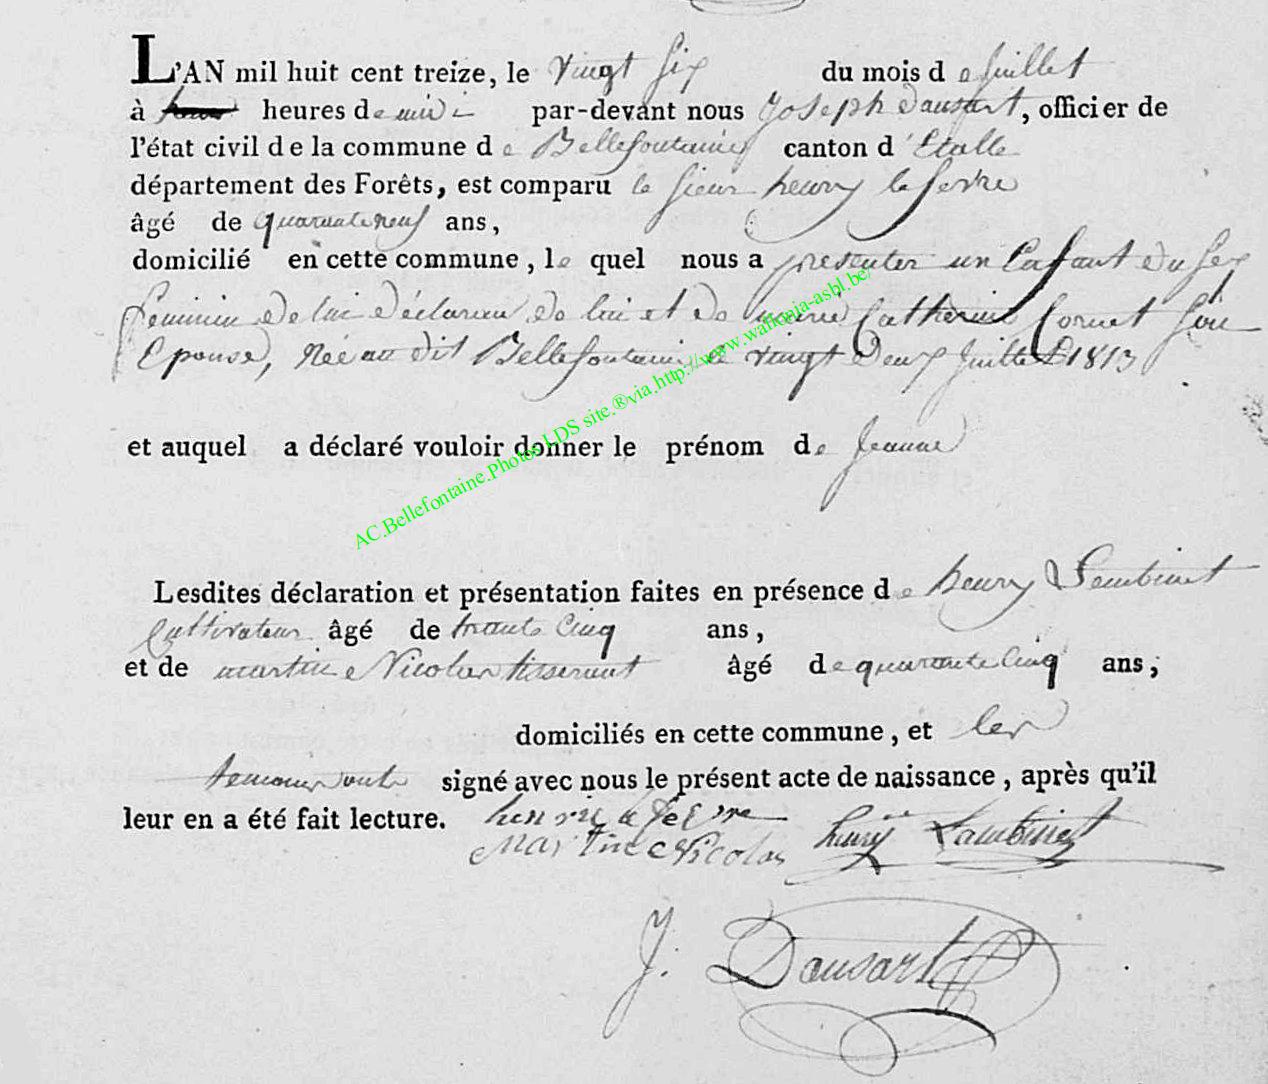 L'AN mil huit cent treize, le vingt six du mois de juillet
à heures de midi par-devant nous Joseph Dausart, officier de
l'état civil de la commune de Bellefontaine canton d'Etalle
département des Forêts, est comparu le sieur henry lefevre
âgé de quarante neuf ans,
domicilié en cette commune, le quel nous a presenter un Enfant du sex
feminin de lui déclarant de lui et de marie Catherine Cornet son
Epouse, Née au dit Bellefontaine le vingt deux juillet 1813
et auquel a déclaré vouloir donner le prénom de jeanne
Lesdites déclaration et présentation faites en présence de henry Lambinet
Cultivateur âgé de trante Cinq ans,
et de martin Nicolas tisserant âgé de quarante Cinq ans,
domiciliés en cette commune, et les
temoins ont signé avec nous le présent acte de naissance, après qu'il
leur en a été fait lecture. henri le fevre
Martin Nicolas henry Lambinet
J. Dausart
AC.Bellefontaine.Photos.LDS site.®via.http://www.wallonia-asbl.be/